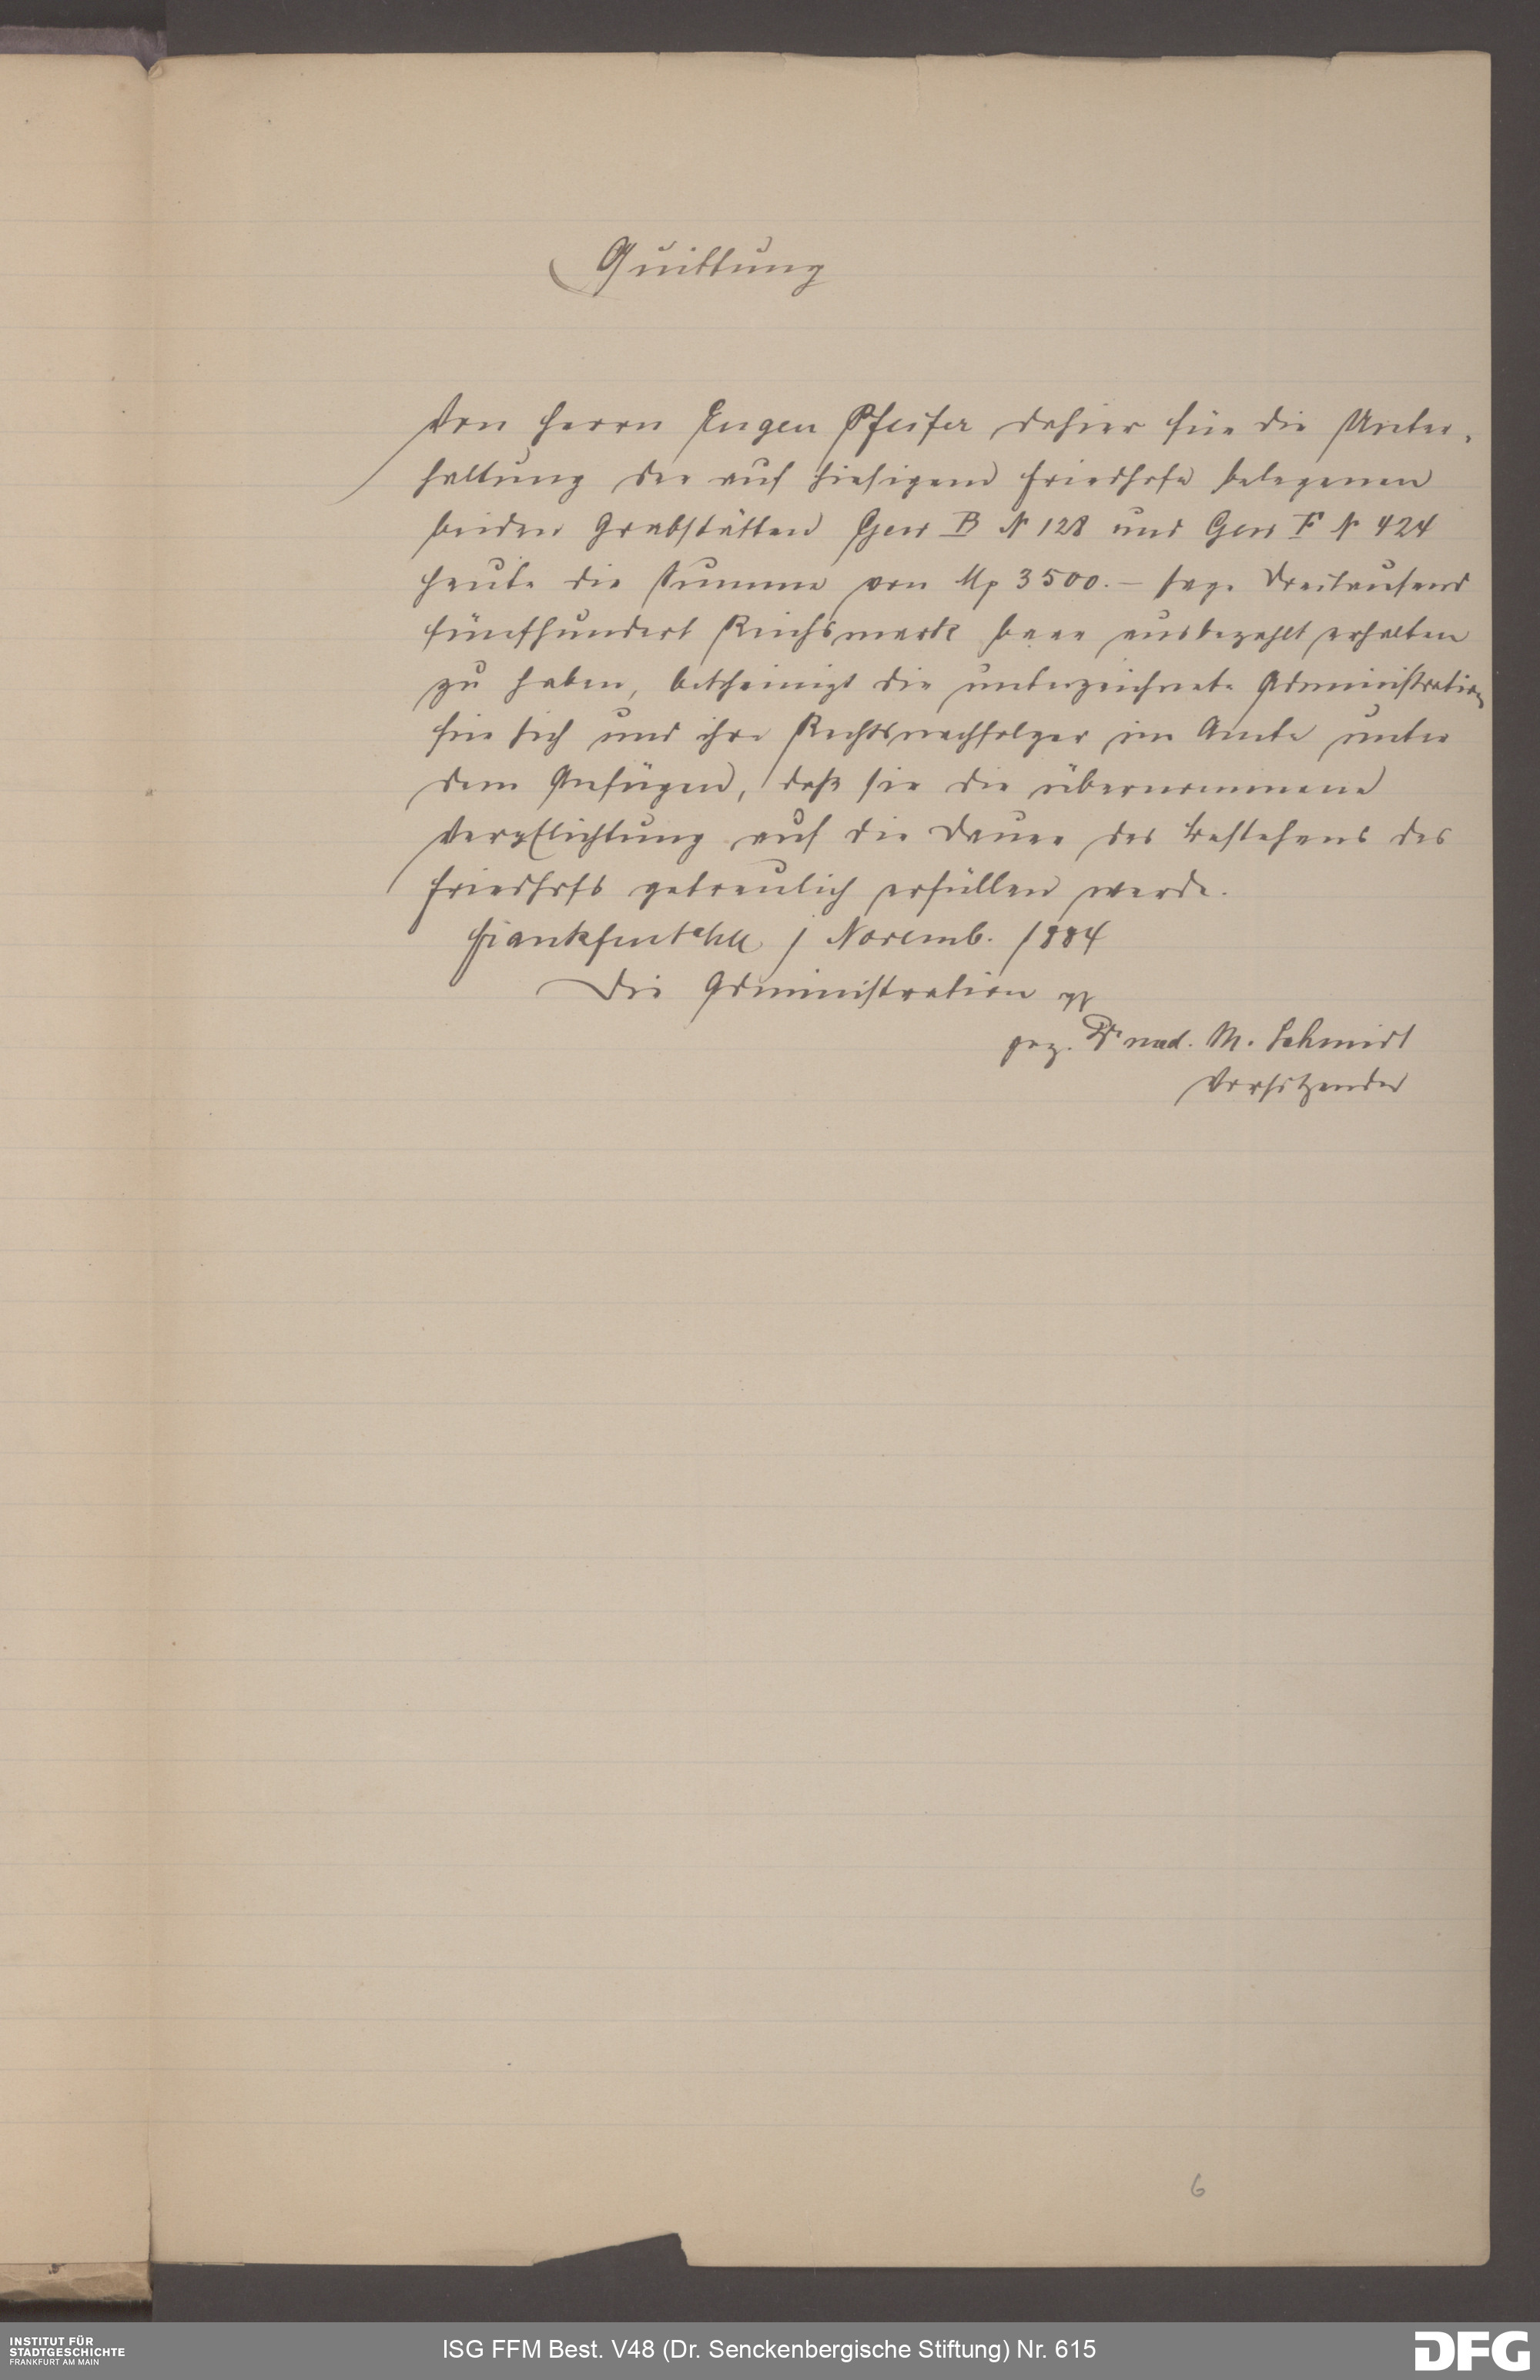 Quittung
Von Herrn Eugen Pfeifer dahier für die Unter-
haltung der auf hiesigem Friedhofe belegenen
beiden Grabstätten Gew B N 128 und Gew F N 424
heute die Summe von Mk 3500.— sage Dreitausend
fünfhundert Reichsmark baar ausbezahlt erhalten
zu haben, bescheinigt die unterzeichnete Administration
für sich und ihre Rechtsnachfolger im Amte unter
dem Anfügen, daß sie die übernommene
Verpflichtung auf die Dauer des Bestehens des
Friedhofs getreulich erfüllen werde.
Frankfurt a/M 1 Novemb. 1884
Die Administration
gez. Dr med. M. Schmidt
Vorsitzender
6
INSTITUT FÜR
STADTGESCHICHTE
FRANKFURT AM MAIN
ISG FFM Best. V48 (Dr. Senckenbergische Stiftung) Nr. 615
DFG